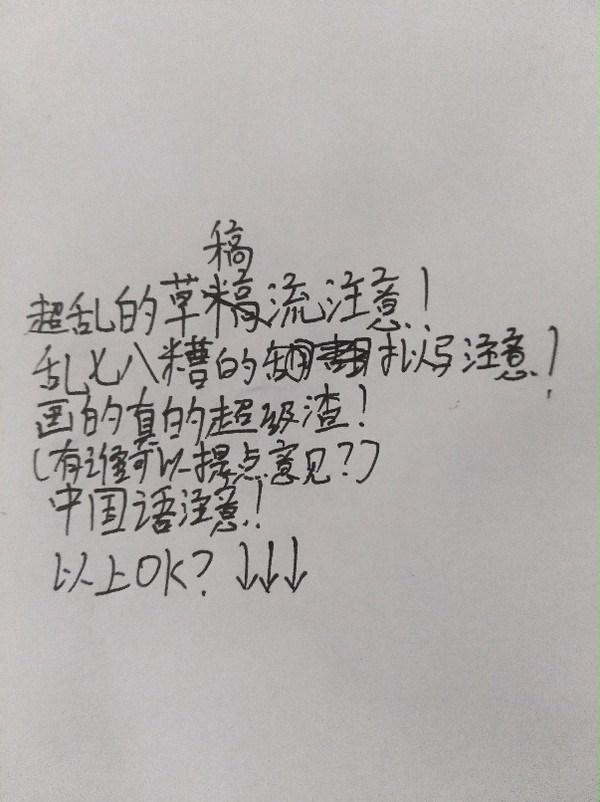 稿
超乱的草流注意!
乱七八糟的拟写注意!
画的真的超级渣!
(有谁可以提点意见?)
中国语注意!
以上OK?↓↓↓